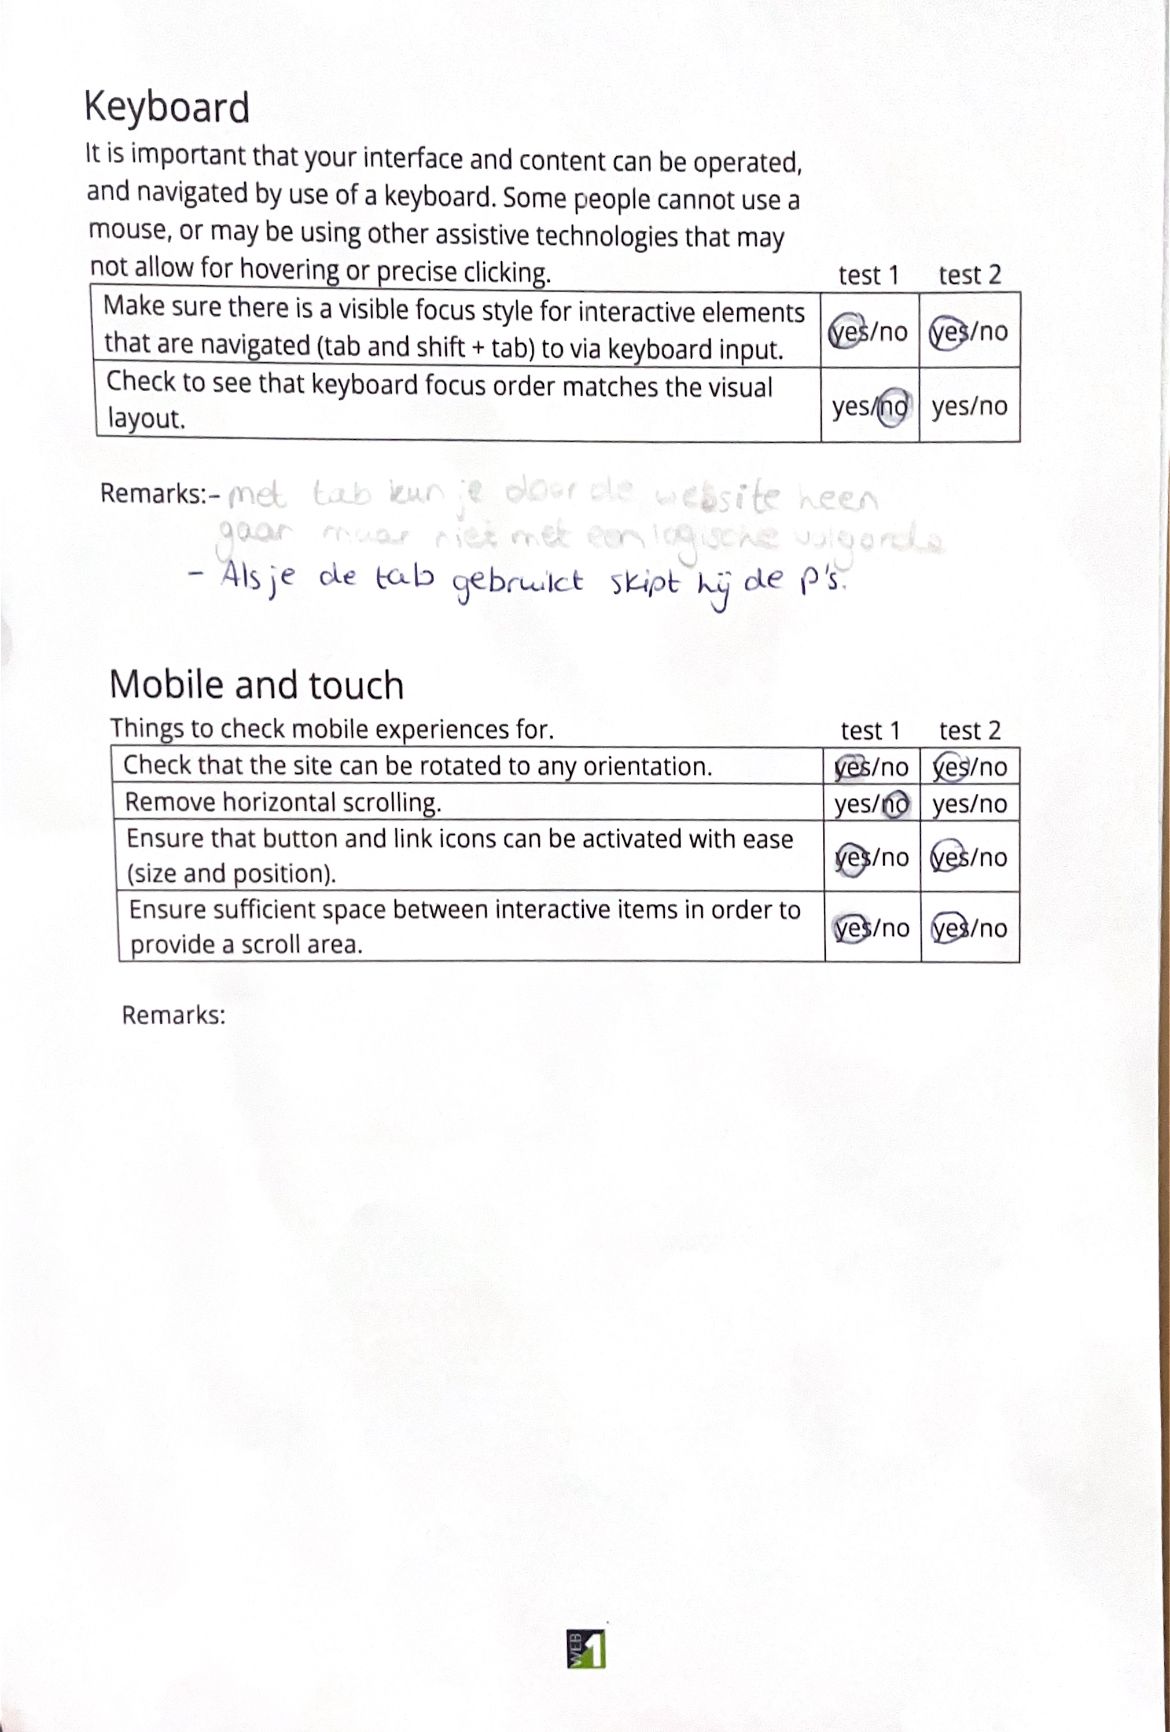 Keyboard
It is important that your interface and content can be operated,
and navigated by use of a keyboard. Some people cannot use a
mouse, or may be using other assistive technologies that may
not allow for hovering or precise clicking. test 1 test 2
Make sure there is a visible focus style for interactive elements
that are navigated (tab and shift + tab) to via keyboard input. yes/no yes/no
Check to see that keyboard focus order matches the visual
layout. yes/no yes/no
Remarks:- met tab kun je door de website heen
gaan maar niet met een logische volgorde
- Als je de tab gebruikt skipt hij de p's.
Mobile and touch
Things to check mobile experiences for. test 1 test 2
Check that the site can be rotated to any orientation. yes/no yes/no
Remove horizontal scrolling. yes/no yes/no
Ensure that button and link icons can be activated with ease
(size and position). yes/no yes/no
Ensure sufficient space between interactive items in order to
provide a scroll area. yes/no yes/no
Remarks:
WEB 1